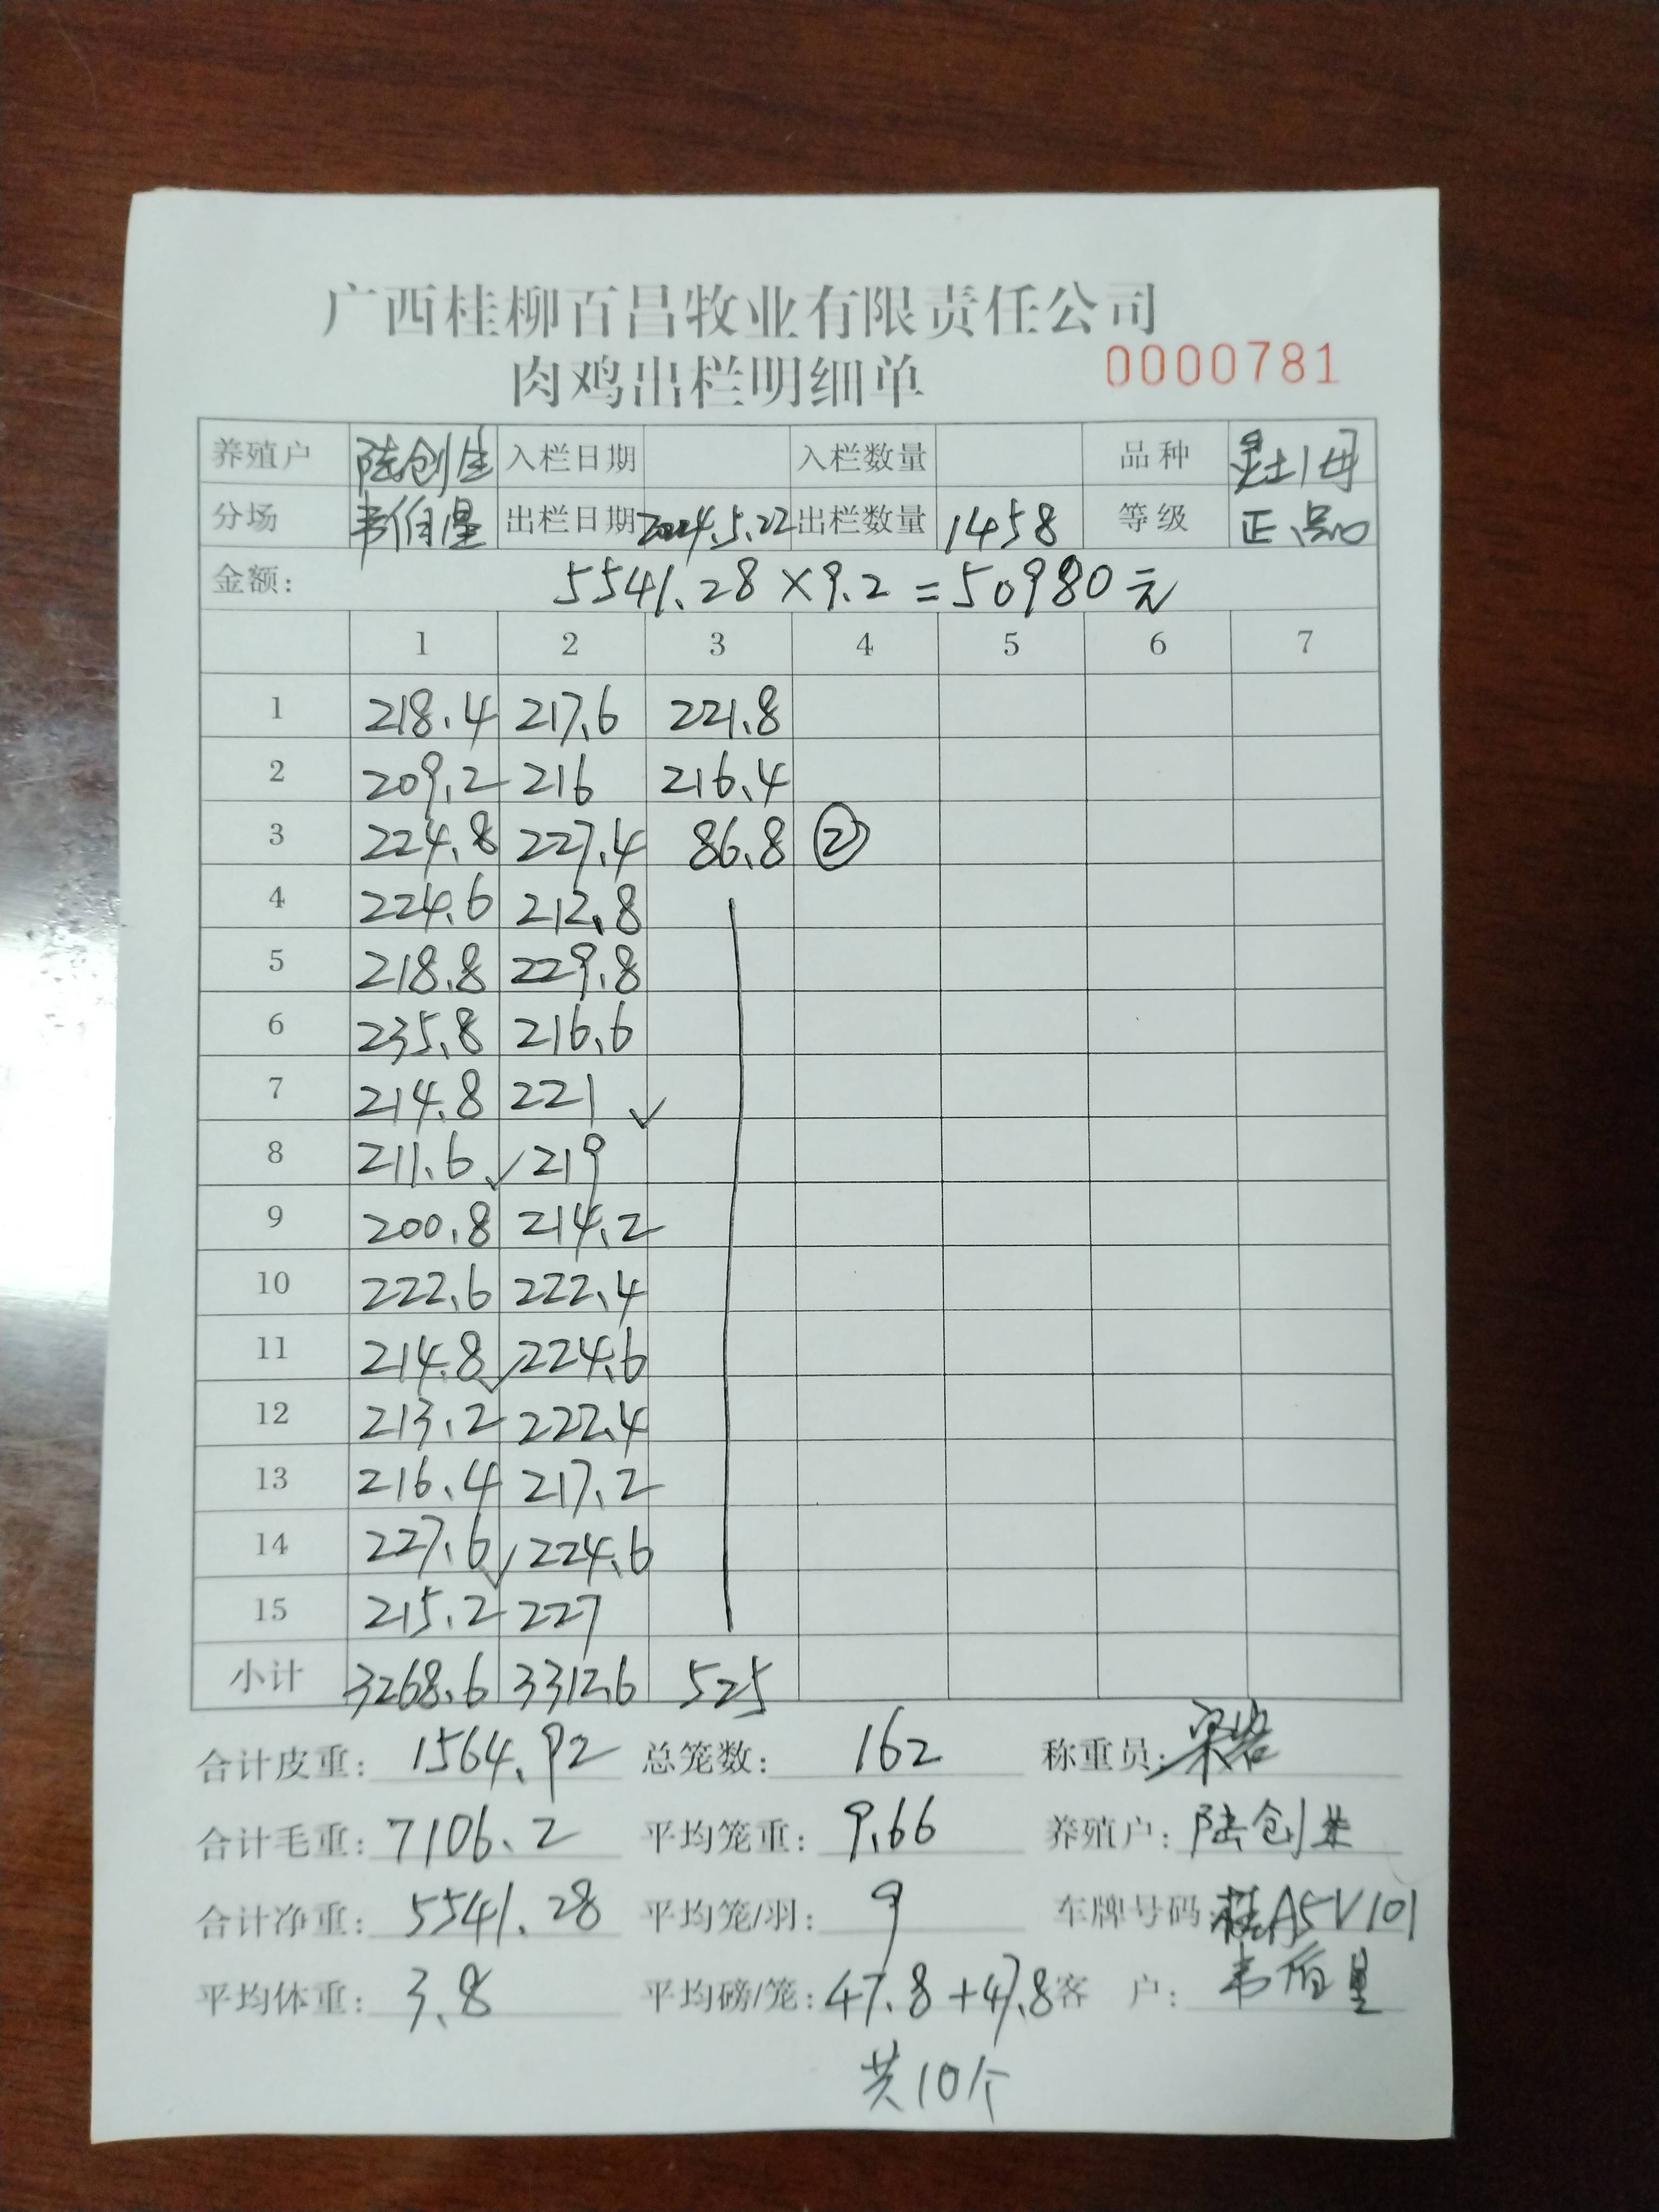 广西桂柳百昌牧业有限责任公司
肉鸡出栏明细单 0000781
养殖户 陆创生 入栏日期 入栏数量 品种 灵土1母
分场 韦伯星 出栏日期 2024.5.22 出栏数量 1458 等级 正品
金额: 5541.28×9.2=50980元
1 2 3 4 5 6 7
1 218.4 217.6 221.8
2 209.2 216 216.4
3 224.8 227.4 86.8 ②
4 224.6 212.8
5 218.8 229.8
6 235.8 216.6
7 214.8 221 ✓
8 211.6 ✓ 219
9 200.8 214.2
10 222.6 222.4
11 214.8 ✓ 224.6
12 213.2 222.4
13 216.4 217.2
14 227.6 ✓ 224.6
15 215.2 227
小计 3268.6 3312.6 525
合计皮重: 1564.92 总笼数: 162 称重员:
合计毛重: 7106.2 平均笼重: 9.66 养殖户: 陆创生
合计净重: 5541.28 平均笼/羽: 9 车牌号码 桂A5V101
平均体重: 3.8 平均磅/笼: 47.8+47.8 客户: 韦伯星
共10个